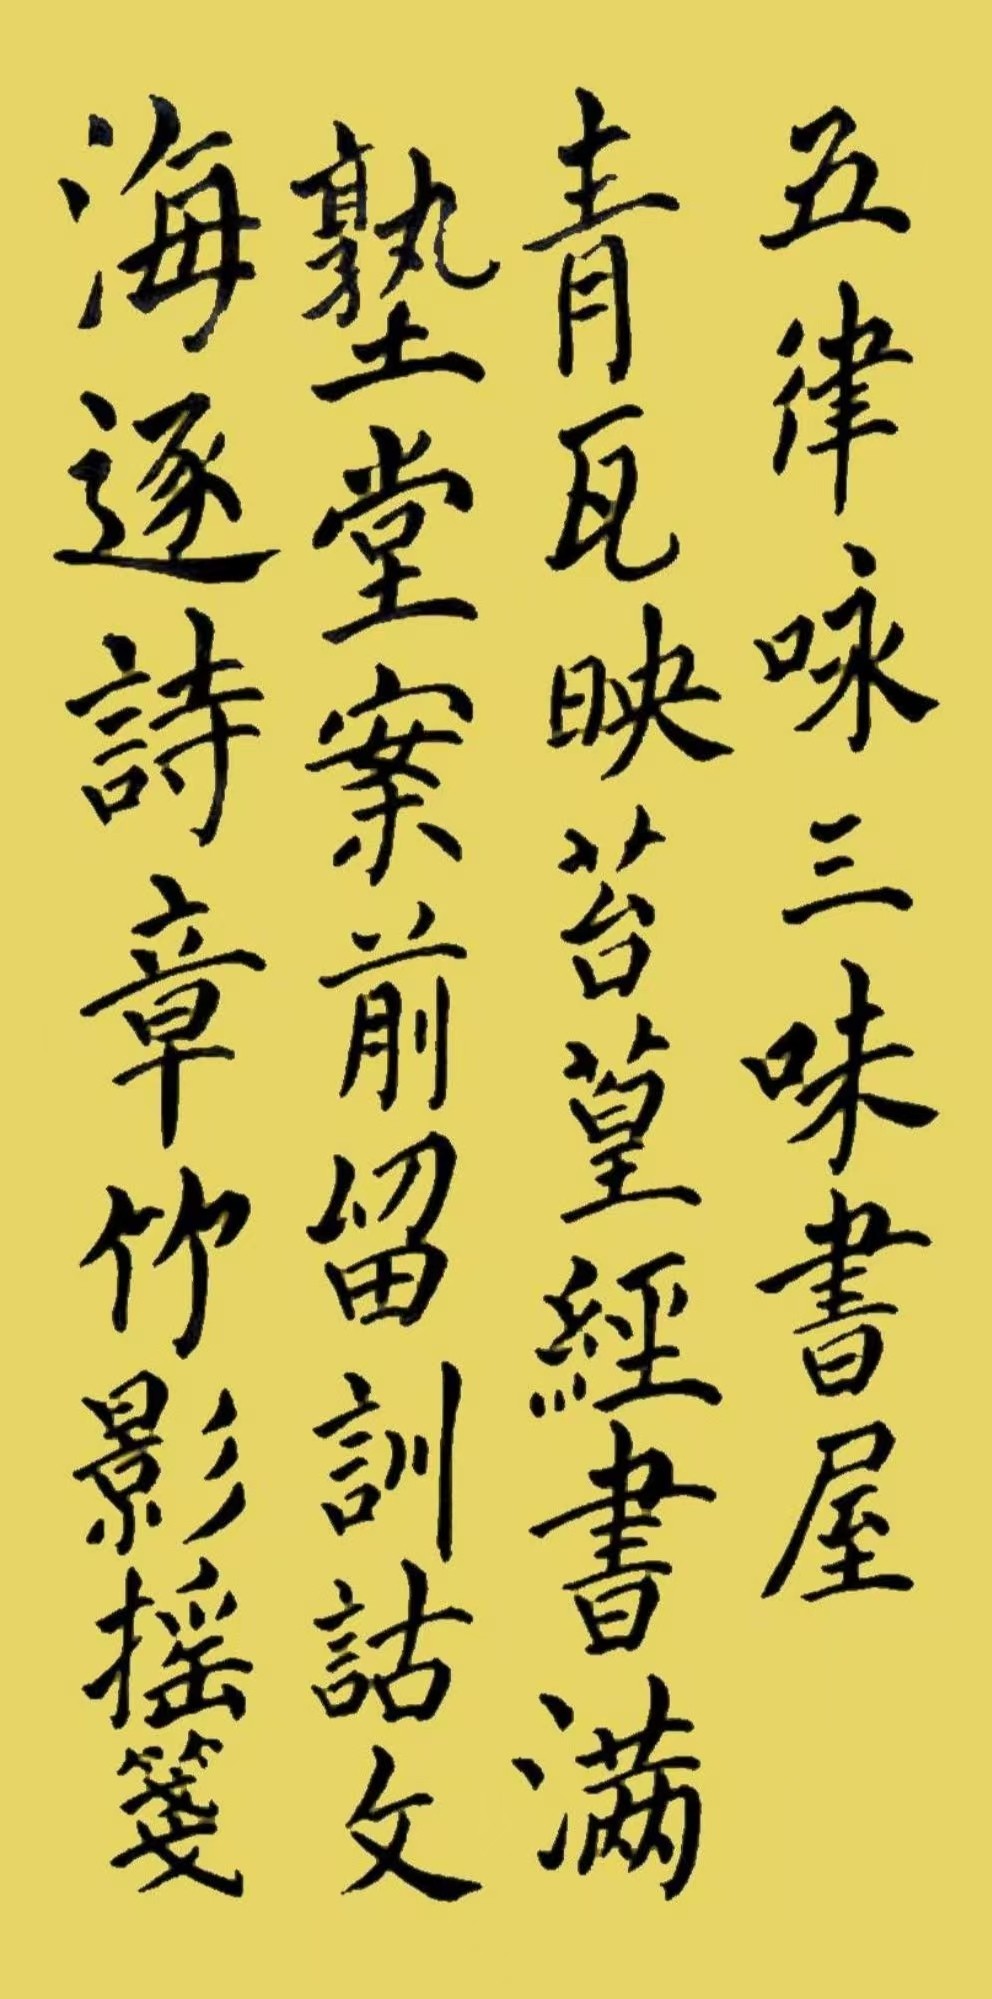 五律咏三味書屋
青瓦映苔篁經書滿
塾堂案前留訓詁文
海逐詩章竹影摇箋